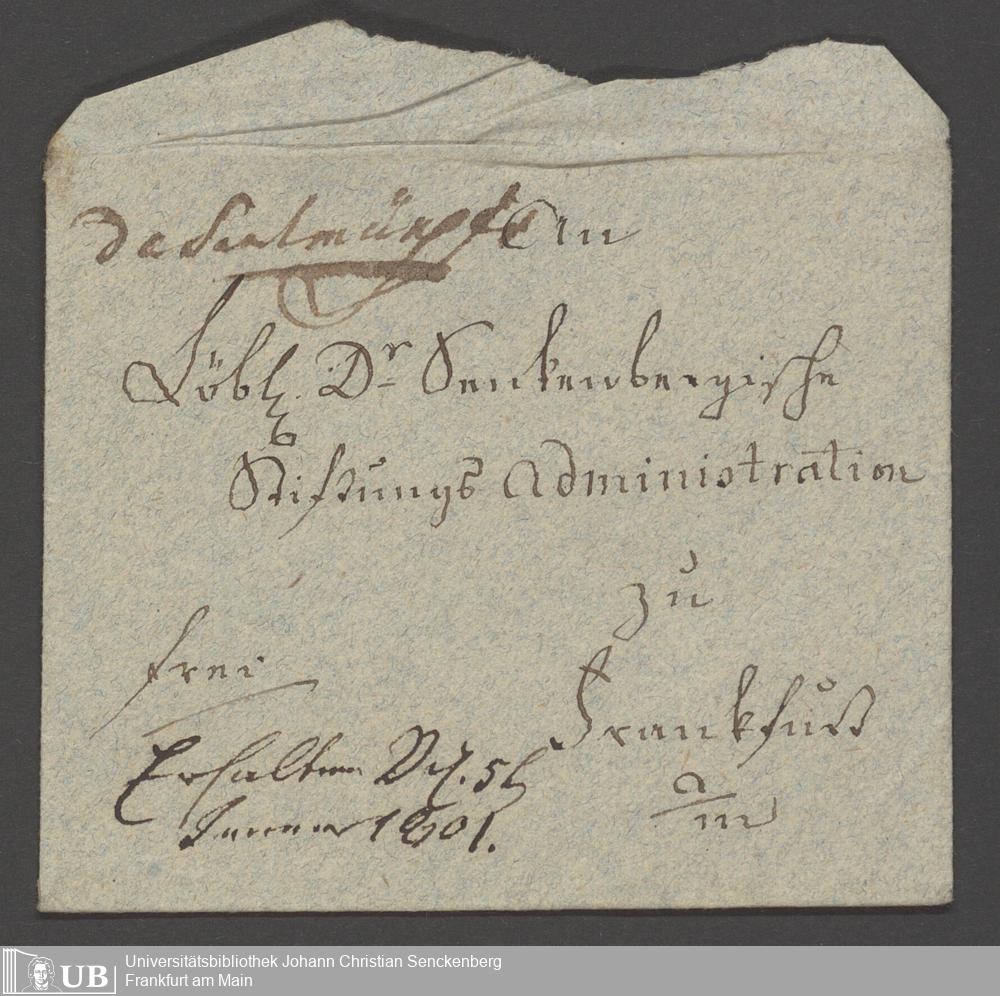 De Saalmünster An
Löbl. Dr Senkenbergische
Stiftungs Administration
zu
frei
Frankfurt
a/m
Erhalten D. 5t
Januar 1801.
UB
Universitätsbibliothek Johann Christian Senckenberg
Frankfurt am Main